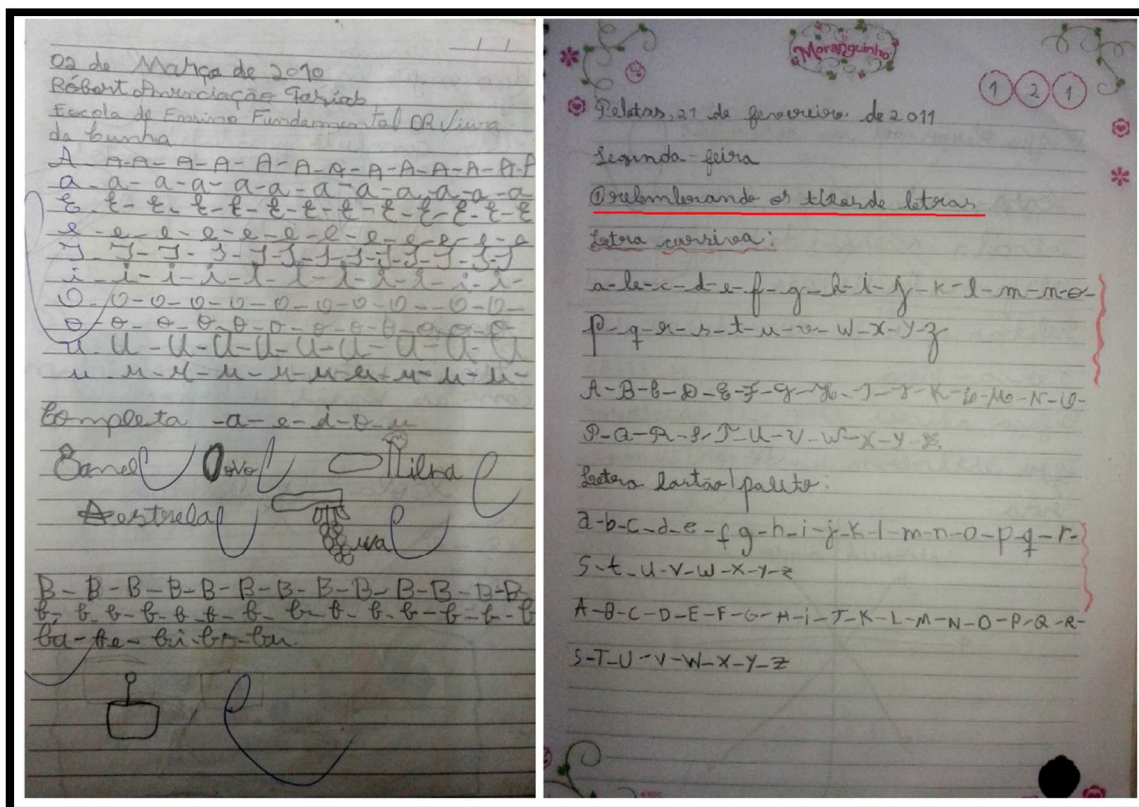 02 de Março de 2010
Róbert Anunciação Farias
Escola de Ensino Fundamental DR Jiura
da Cunha
A - A - A - A - A - A - A - A - A - A - A - A - A
a - a - a - a - a - a - a - a - a - a - a - a
E - E - E - E - E - E - E - E - E - E - E - E
e - e - e - e - e - e - e - e - e - e - e - e
I - I - I - I - I - I - I - I - I - I - I - I
i - i - i - i - i - i - i - i - i - i - i -
O - O - O - O - O - O - O - O - O - O -
o - o - o - o - o - o - o - o - o - o - o
U - U - U - U - U - U - U - U - U - U
u - u - u - u - u - u - u - u - u - u -
Completa - a - e - i - o - u
Banel Ovo Milha
Aestrela
uva
B - B - B - B - B - B - B - B - B - B - B - B - B
b - b - b - b - b - b - b - b - b - b - b - b - b
ba - be - bi - bo - bu.
Moranguinho
1 2 1
Pelotas, 21 de fevereiro de 2011
Segunda-feira
① relembrando os tipos de letras
Letra cursiva:
a-b-c-d-e-f-g-h-i-j-k-l-m-n-o-
p-q-r-s-t-u-v-w-x-y-z
A-B-C-D-E-F-G-H-I-J-K-L-M-N-O-
P-Q-R-S-T-U-V-W-X-Y-Z.
Letra bastão/palito:
a-b-c-d-e-f g-h-i-j-k-l-m-n-o-p-q-r-
s-t-u-v-w-x-y-z
A-B-C-D-E-F-G-H-i-J-K-L-M-N-O-P-Q-R-
S-T-U-V-W-X-Y-Z